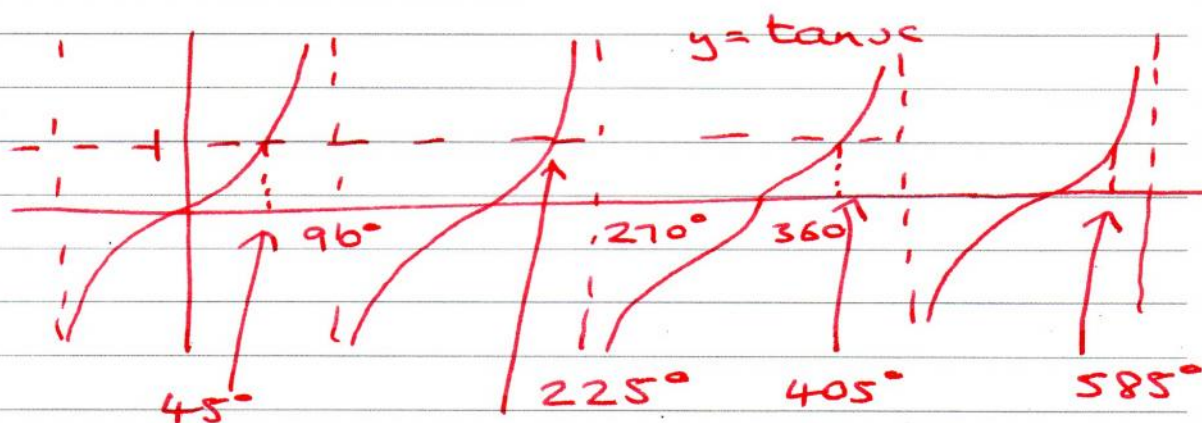 y = tanx
90°
270°
360
45°
225°
405°
585°